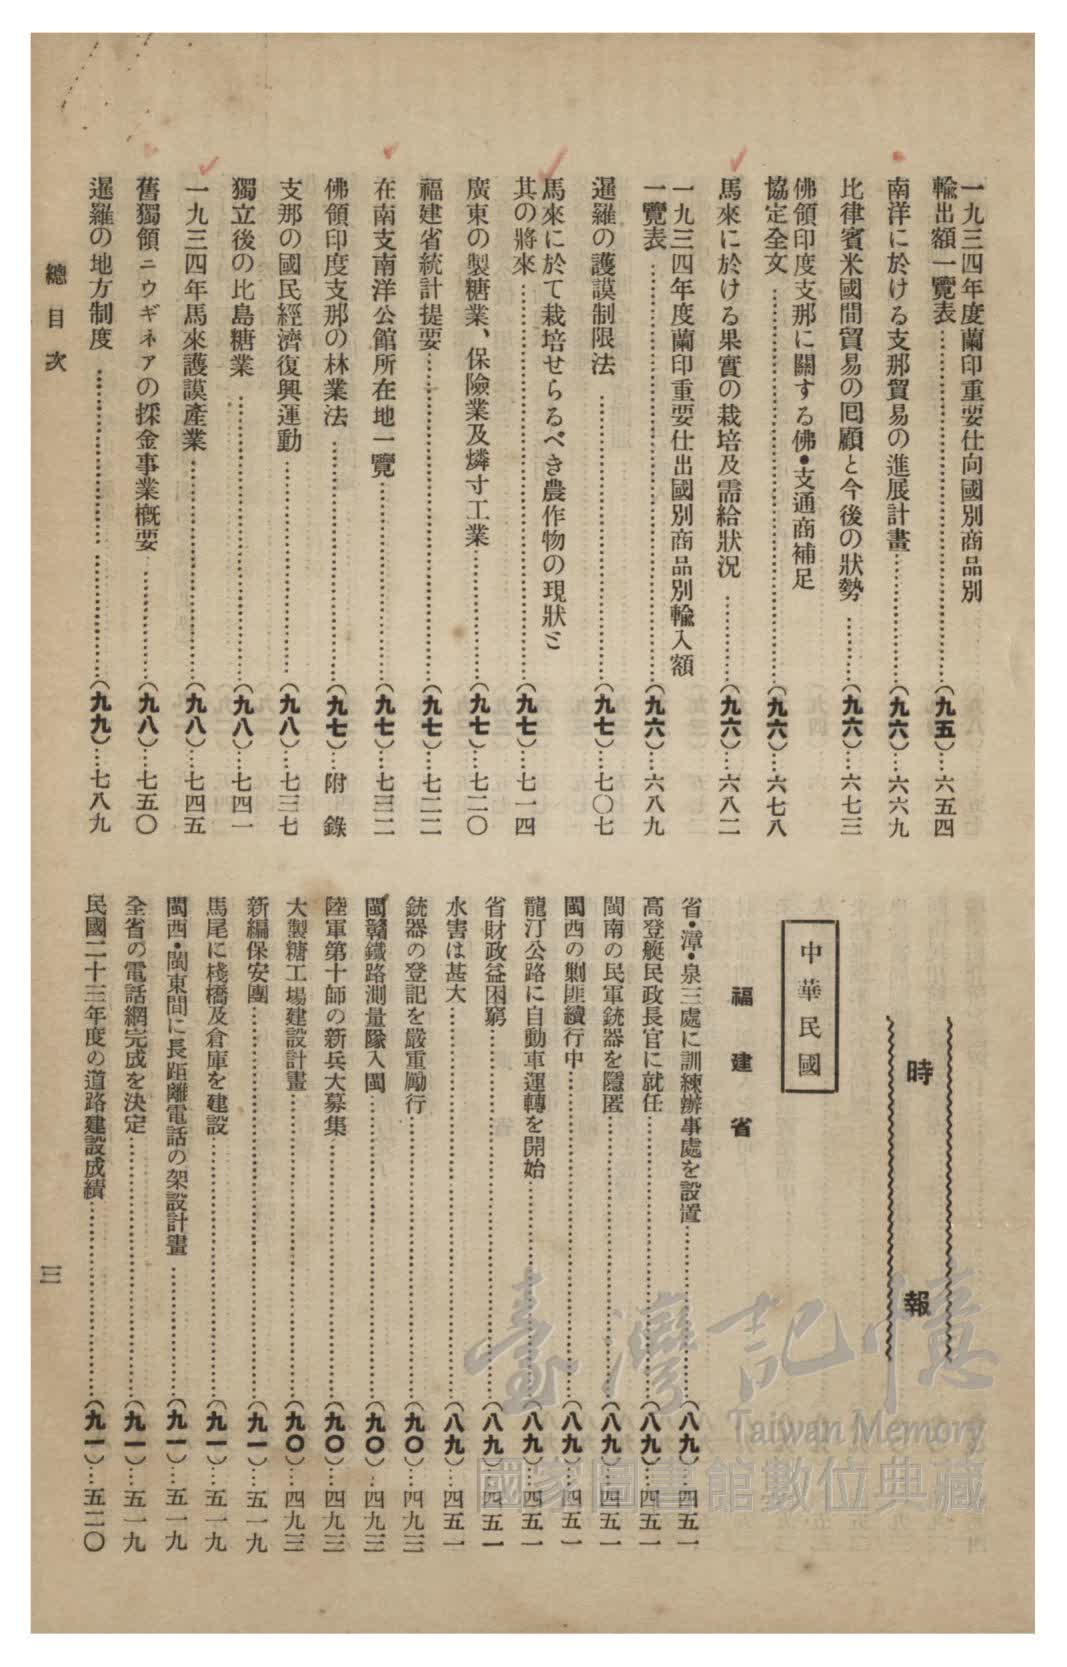 一九三四年度蘭印重要仕向國別商品別
輸出額一覽表……(九五)…六五四
南洋に於ける支那貿易の進展計畫……(九六)…六六九
比律賓米國間貿易の囘顧と今後の狀勢……(九六)…六七三
佛領印度支那に關する佛•支通商補足
協定全文……(九六)…六七八
馬來に於ける果實の栽培及需給狀況……(九六)…六八二
一九三四年度蘭印重要仕出國別商品別輸入額
一覽表……(九六)…六八九
暹羅の護謨制限法……(九七)…七〇七
馬來に於て栽培せらるべき農作物の現狀と
其の將來……(九七)…七一四
廣東の製糖業、保險業及燐寸工業……(九七)…七二〇
福建省統計提要……(九七)…七二二
在南支南洋公館所在地一覽……(九七)…七三二
佛領印度支那の林業法……(九七)…附錄
支那の國民經濟復興運動……(九八)…七三七
獨立後の比島糖業……(九八)…七四一
一九三四年馬來護謨產業……(九八)…七四五
舊獨領ニウギネアの採金事業概要……(九八)…七五〇
暹羅の地方制度……(九九)…七八九
時報
中華民國
福建省
省•漳•泉三處に訓練辦事處を設置……(八九)…四五一
高登艇民政長官に就任……(八九)…四五一
閩南の民軍銃器を隱匿……(八九)…四五一
閩西の剿匪續行中……(八九)…四五一
龍汀公路に自動車運轉を開始……(八九)…四五一
省財政益困窮……(八九)…四五一
水害は甚大……(八九)…四五一
銃器の登記を嚴重勵行……(九〇)…四九三
閩贛鐵路測量隊入閩……(九〇)…四九三
陸軍第十師の新兵大募集……(九〇)…四九三
大製糖工場建設計畫……(九〇)…四九三
新編保安團……(九一)…五一九
馬尾に棧橋及倉庫を建設……(九一)…五一九
閩西•閩東間に長距離電話の架設計畫……(九一)…五一九
全省の電話網完成を決定……(九一)…五一九
民國二十三年度の道路建設成績……(九一)…五二〇
總目次
三
臺灣記憶
Taiwan Memory
國家圖書館數位典藏